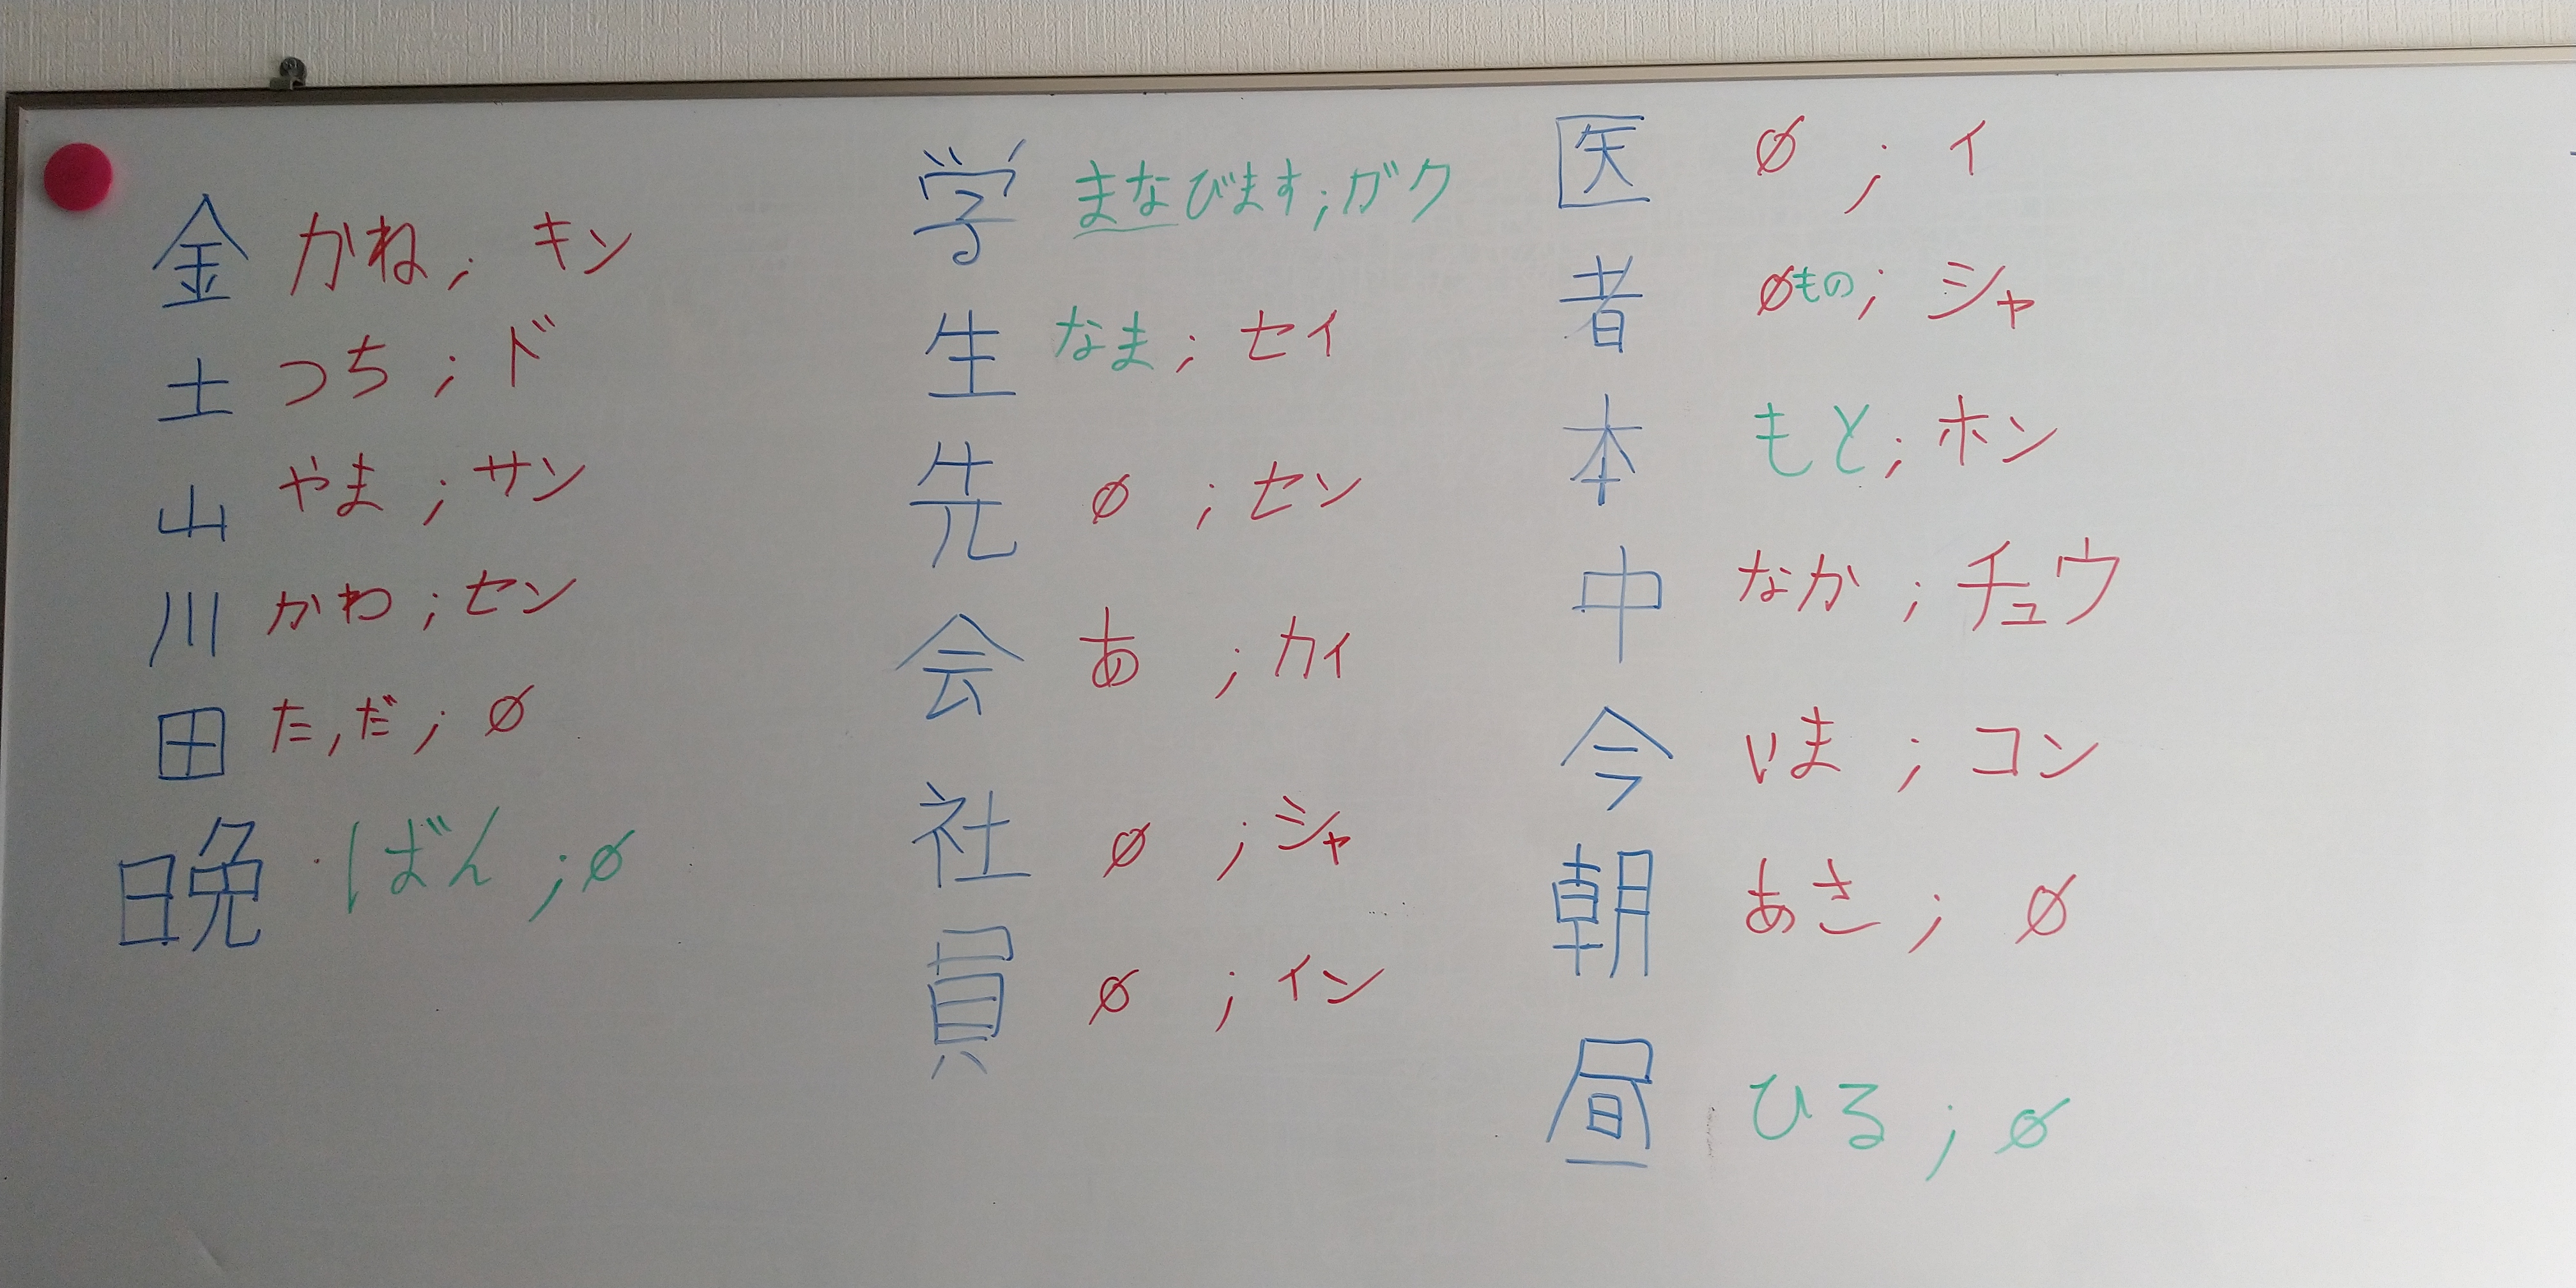 金 かね; キン
土 つち; ド
山 やま; サン
川 かわ; セン
田 た,だ; ∅
晩 ばん; ∅
学 まなびます; ガク
生 なま; セイ
先 ∅; セン
会 あ; カイ
社 ∅; シャ
員 ∅; イン
医 ∅; イ
者 ∅もの; シャ
本 もと; ホン
中 なか; チュウ
今 いま; コン
朝 あさ; ∅
昼 ひる; ∅